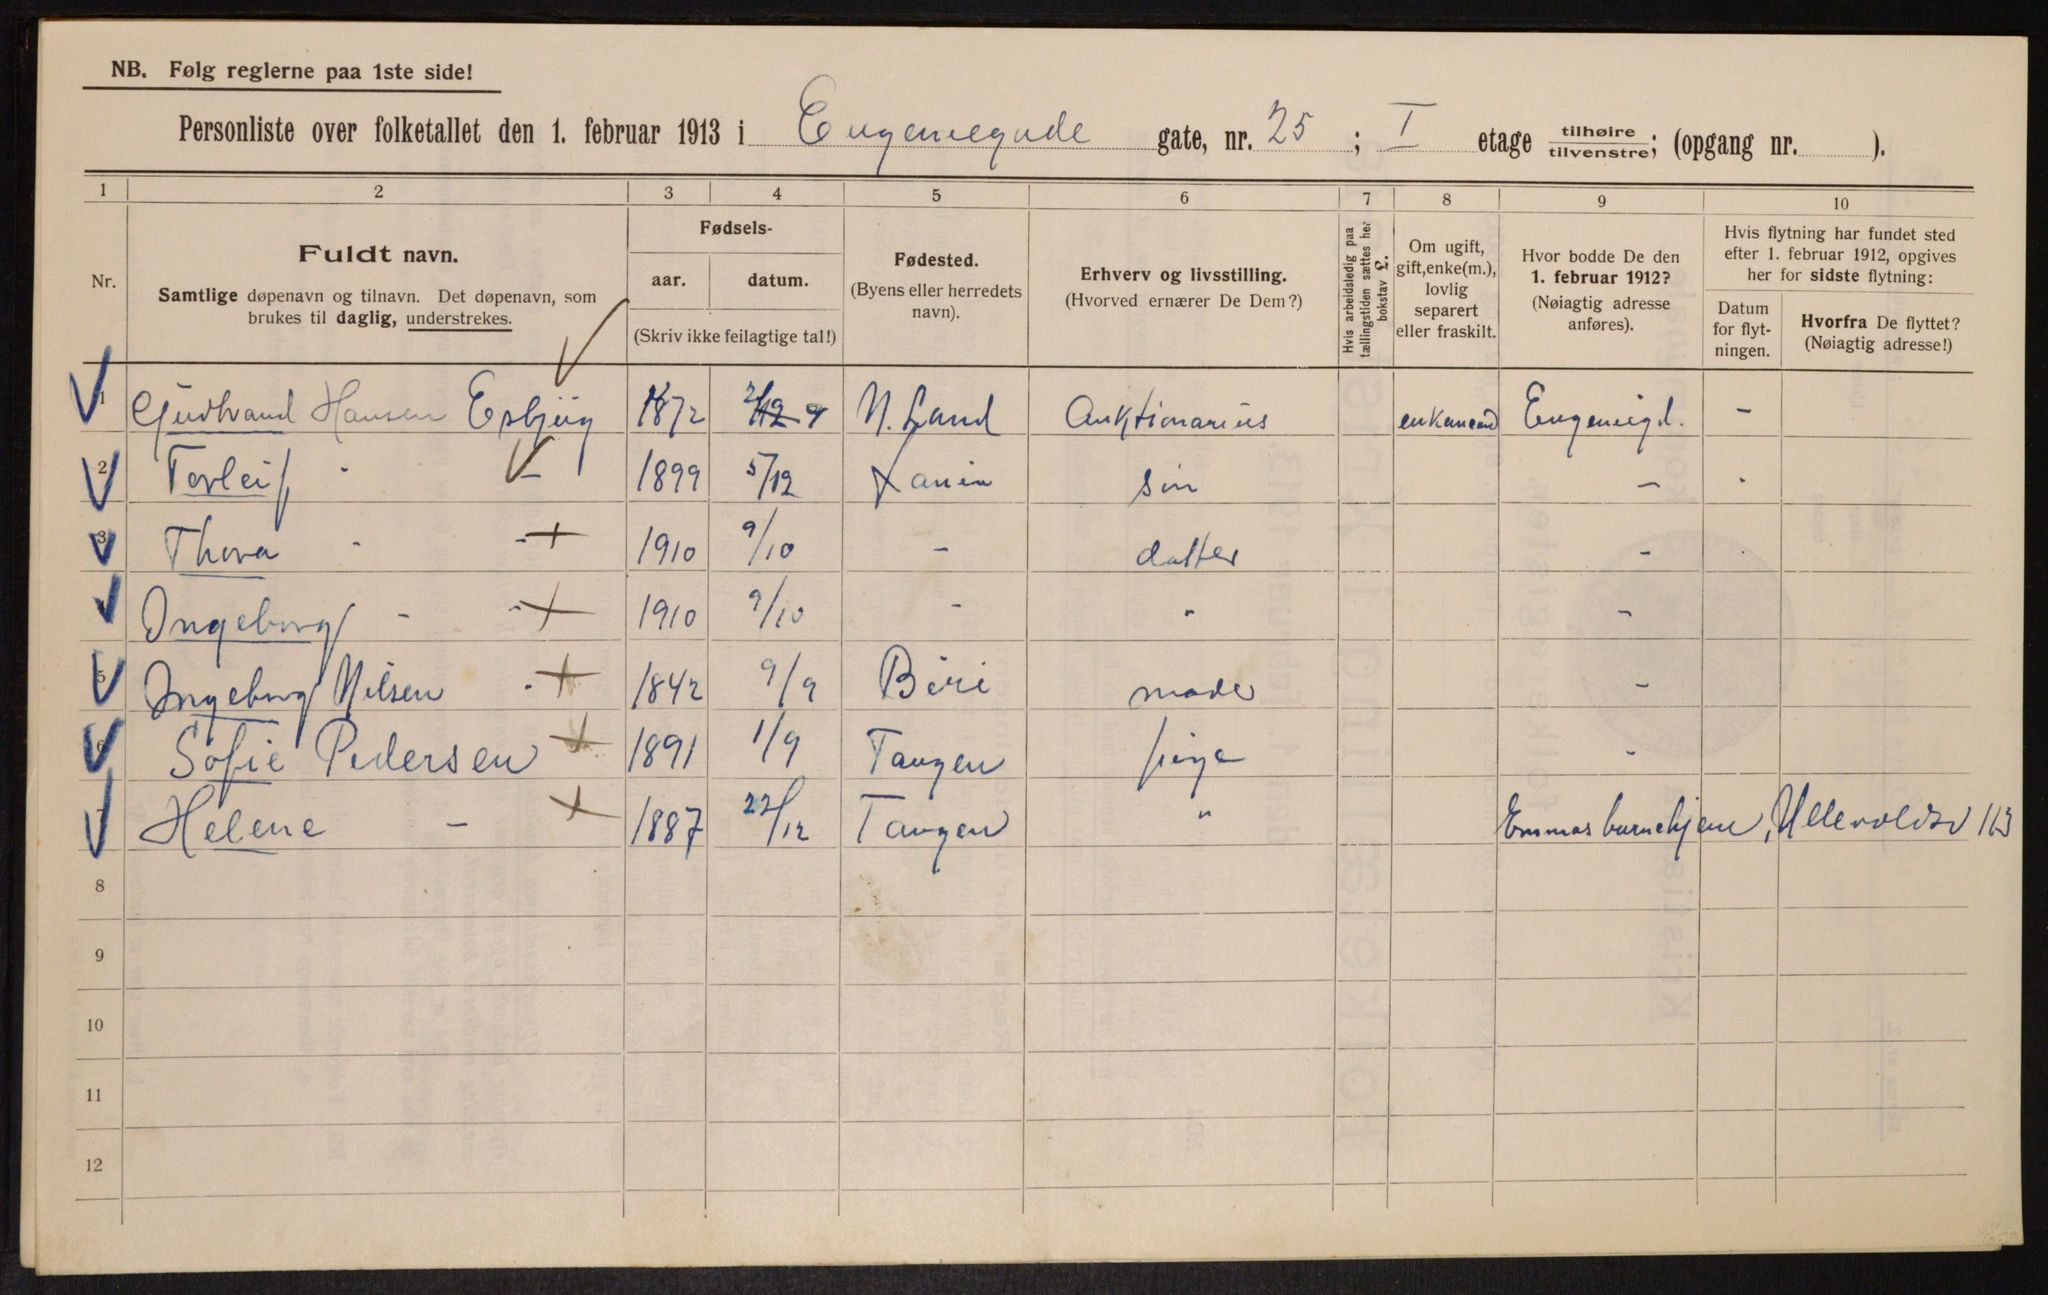 NB. Følg reglerne paa 1ste side!
Personliste over folketallet den 1. februar 1913 i Eugeniegade gate, nr. 25 ; I etage tilhøire/tilvenstre; (opgang nr. ).
1 2 3 4 5 6 7 8 9 10
Nr.
Fuldt navn.
Samtlige døpenavn og tilnavn. Det døpenavn, som
brukes til daglig, understrekes.
Fødsels-
aar. datum.
(Skriv ikke feilagtige tal!)
Fødested.
(Byens eller herredets
navn).
Erhverv og livsstilling.
(Hvorved ernærer De Dem?)
Hvis arbeidsledig paa
tællingstiden sættes her
bokstav £.
Om ugift,
gift, enke(m.),
lovlig
separert
eller fraskilt.
Hvor bodde De den
1. februar 1912?
(Nøiagtig adresse
anføres).
Hvis flytning har fundet sted
efter 1. februar 1912, opgives
her for sidste flytning:
Datum
for flyt-
ningen.
Hvorfra De flyttet?
(Nøiagtig adresse!)
1 Gudbrand Hansen Esbjug 1872 N. Land Auktionarius enkemand Eugeniegd. -
2 Torleif " - 1899 5/12 søn - "
3 Thora " - 1910 9/10 - datter -
Ingeborg - - 1910 9/10 - " -
5 Ingeborg Nilsen 1842 9/9 Biri moder -
6 Sofie Pedersen 1891 1/9 Tangen pige -
7 Helene - 1887 22/12 Tangen " Emmas barnehjem, Ullevoldsv 113
8
9
10
11
12